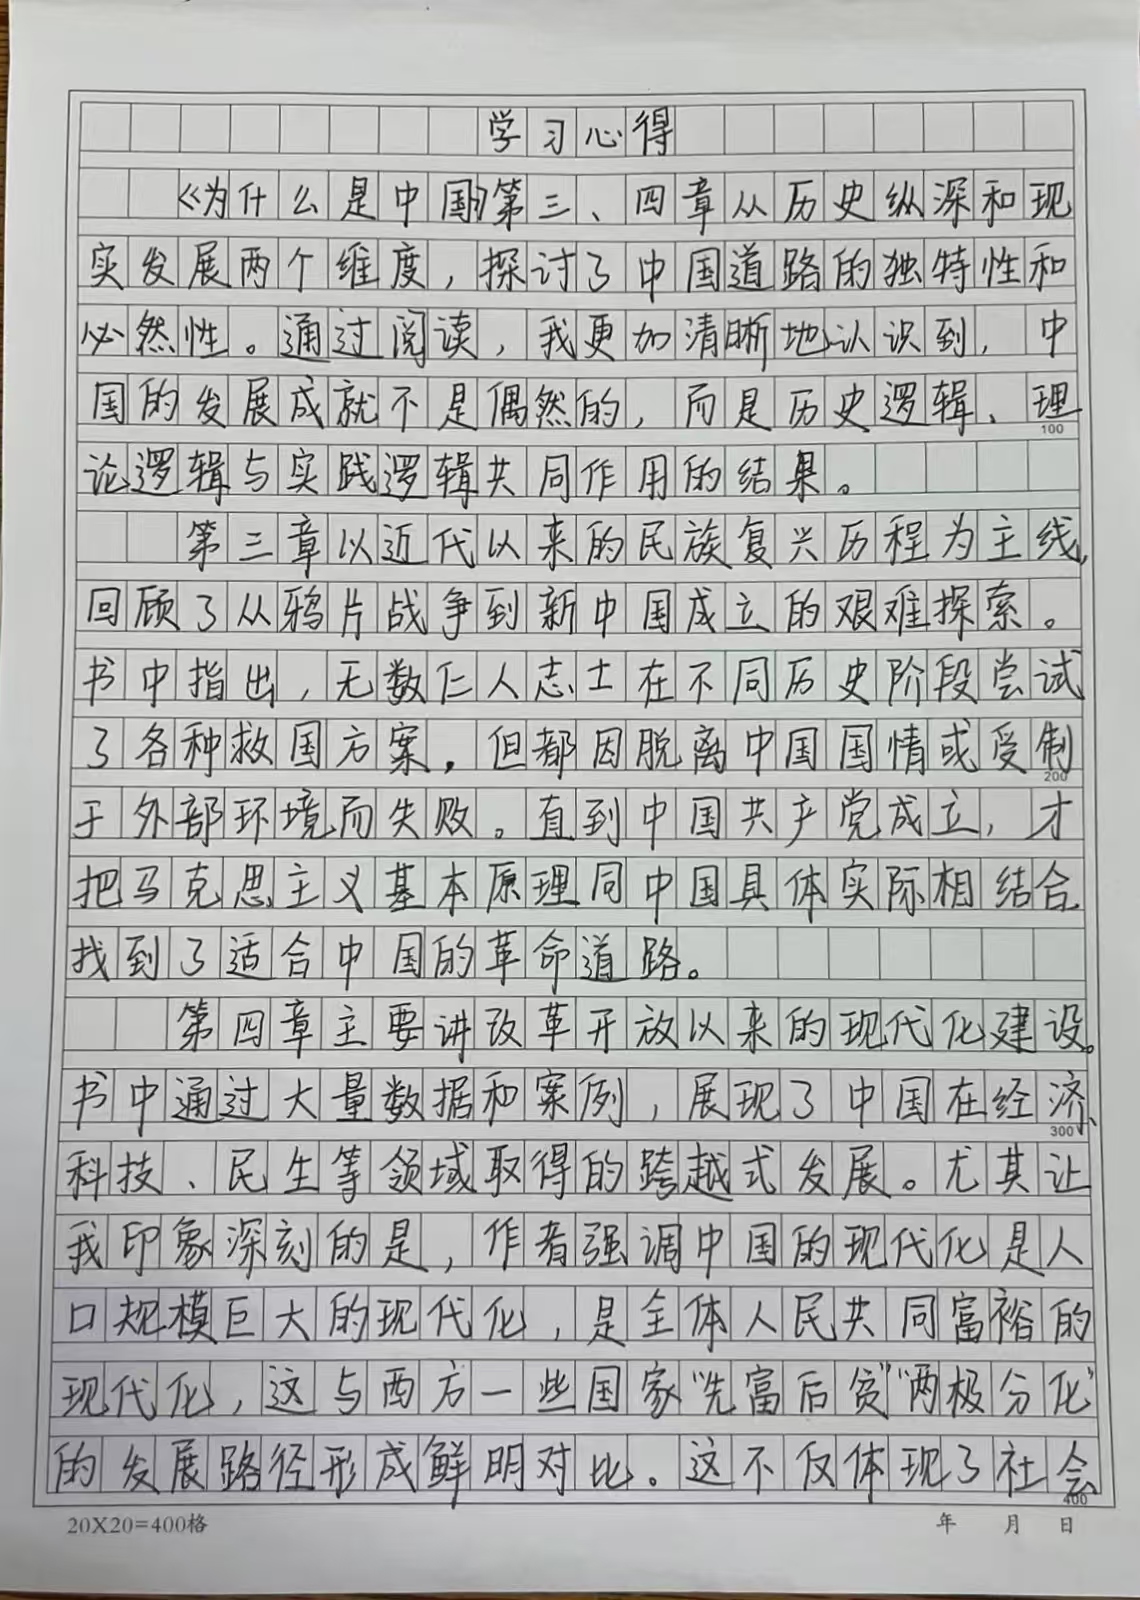 学习心得
《为什么是中国》第三、四章从历史纵深和现
实发展两个维度，探讨了中国道路的独特性和
必然性。通过阅读，我更加清晰地认识到，中
国的发展成就不是偶然的，而是历史逻辑、理
100
论逻辑与实践逻辑共同作用的结果。
第三章以近代以来的民族复兴历程为主线，
回顾了从鸦片战争到新中国成立的艰难探索。
书中指出，无数仁人志士在不同历史阶段尝试
了各种救国方案，但都因脱离中国国情或受制
200
于外部环境而失败。直到中国共产党成立，才
把马克思主义基本原理同中国具体实际相结合，
找到了适合中国的革命道路。
第四章主要讲改革开放以来的现代化建设。
书中通过大量数据和案例，展现了中国在经济、
300
科技、民生等领域取得的跨越式发展。尤其让
我印象深刻的是，作者强调中国的现代化是人
口规模巨大的现代化，是全体人民共同富裕的
现代化，这与西方一些国家“先富后贫”“两极分化”
的发展路径形成鲜明对比。这不仅体现了社会
400
20X20=400格 年 月 日